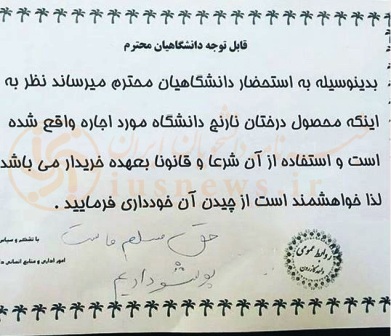 قابل توجه دانشگاهیان محترم
بدینوسیله به استحضار دانشگاهیان محترم میرساند نظر به
اینکه محصول درختان نارنج دانشگاه مورد اجاره واقع شده
است و استفاده از آن شرعا و قانونا بعهده خریدار می باشد
لذا خواهشمند است از چیدن آن خودداری فرمایید .
با تشکر و سپاس
امور اداری و منابع انسانی
حق مسلم ماست
روابط عمومی
iusnews.ir